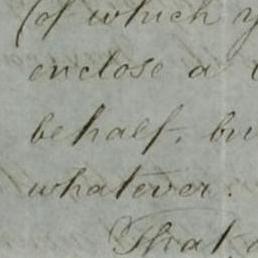 (of which y
enclose a
behalf, bu
whatever.
That